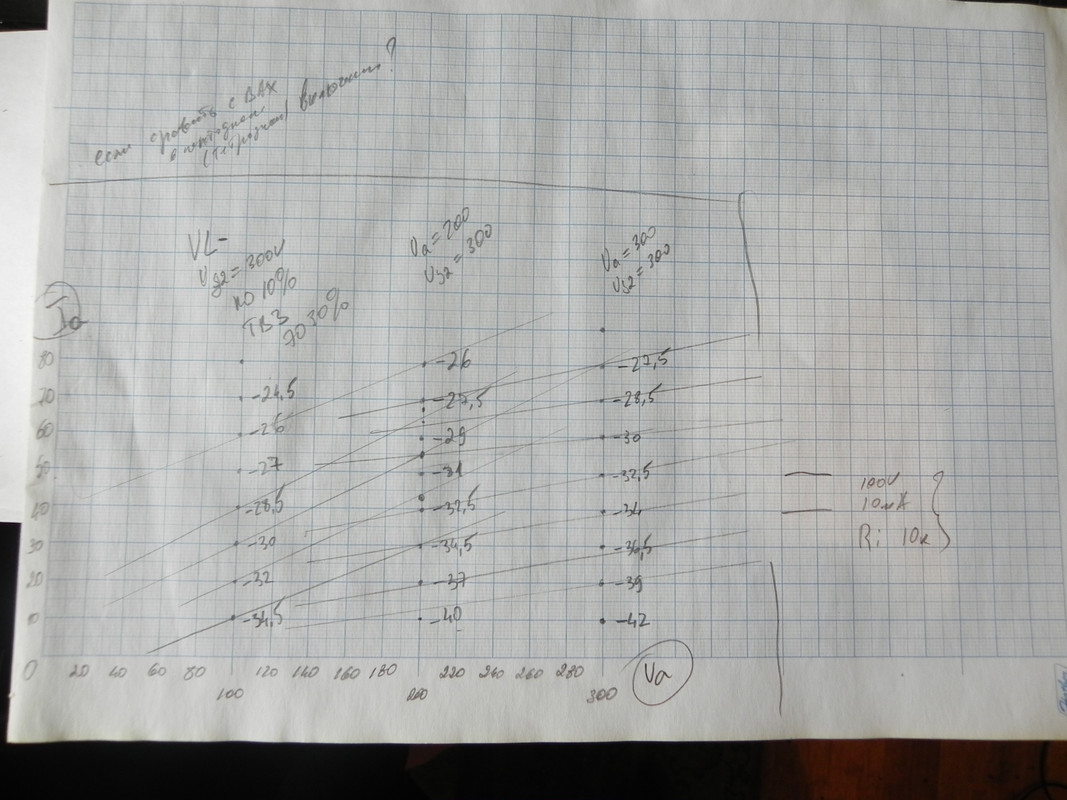 если сравнить с ВАХ
в пентодном
(тетродном) включении?
VL-
Vg2 = 300V
по 10%
ТВЗ
70 30%
Va = 200
Vg2 = 300
Va = 300
Vg2 = 300
Ia
80
70
60
50
40
30
20
10
0
-24,5
-26
-27
-28,5
-30
-32
-34,5
-26
-27,5
-29
-31
-32,5
-34,5
-37
-40
-27,5
-28,5
-30
-32,5
-34
-36,5
-39
-42
100V
10mA
Ri 10к
20 40 60 80 120 140 160 180 220 240 260 280
100 200 300
Va